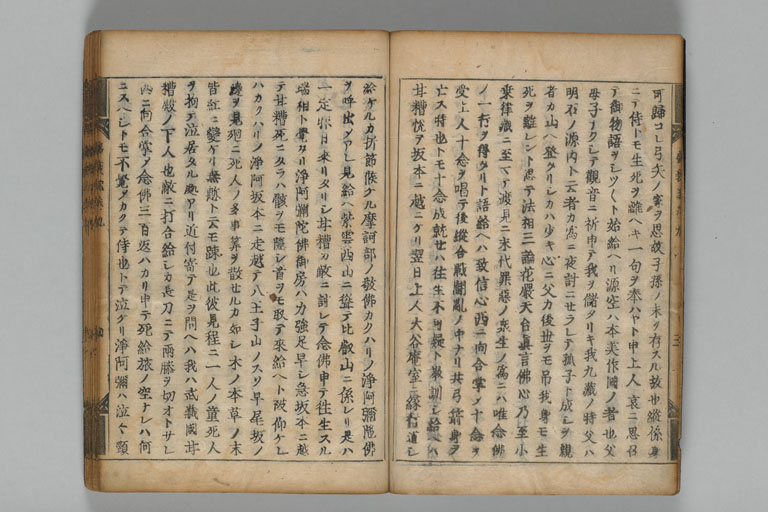 可歸コレ弓矢ノ家ヲ思故子孫ノ末ヲ存スル故也縱係身
ニテ侍トモ生死ヲ離ヘキ一句ヲ奉ハヤト申上人哀ニ思召
テ御物語ヲシツヽト始給ヘリ源空ハ本美作國ノ者也父
母子ナクシテ觀音ニ祈申テ我ヲ儲タリキ我九歳ノ時父ハ
明石ノ源内ト云者カ爲ニ夜討ニセラレテ孤子ト成シヲ親
者カ山ヘ登タリシカハ少キ心ニ父カ後世ヲモ吊我身モ生
死ヲ離レント思テ法相三論花嚴天台眞言佛心乃至小
乘律藏ニ至マテ渡見ニ末代罪惡ノ衆生ノ爲ニハ唯念佛
ノ一行ヲ得タリト語給ヘハ致信心西ニ向合掌ノ十念ヲ
受上人十念ヲ唱テ後縱合戰鬪亂ノ中ナリ共弓箭ニ身ヲ
亡ス時也トモ十念成就セハ往生不可疑ト教訓シ給ヘハ
甘糟悦テ坂本ニ越ニケリ翌日上人大谷禪室ニ縁行道シ
給ケルカ折節候ケル摩訶部ノ敬佛カクハリノ淨阿彌陀佛
ヲ呼出シアレ見給ヘ紫雲西山ニ聳テ比叡山ニ係レリ是ハ
一定昨日来リタリシ甘糟カ敵ニ討レテ念佛申テ徃生スル
瑞相ト覺タリ淨阿彌陀佛御房ハ力強足早シ急坂本ニ越
テ甘糟死ニタラハ骸ヲモ隱シ首ヲモ取テ來給ヘト被仰ケレ
ハカクハリノ淨阿坂本ニ走越テ八王子山ノスソ早尾坂ノ
邊ヲ見廻ニ死人ノ多事算ヲ散セルカ如シ木ノ本草ノ末
皆紅ニ變ケリ無慙ト云モ疎也此彼見程ニ一人ノ童死人
ヲ拘テ泣居タル處アリ近付寄テ是ヲ問ヘハ我ハ武藏國甘
糟殿ノ下人也敵ニ打合給シカ長刀ニテ兩膝ヲ切オトサレ
西ニ向合掌ノ念佛三百返ハカリ申テ死給旅ノ空ナレハ何
ニスヘシトモ不覺メカクテ侍也トテ泣ケリ淨阿彌ハ泣々頸